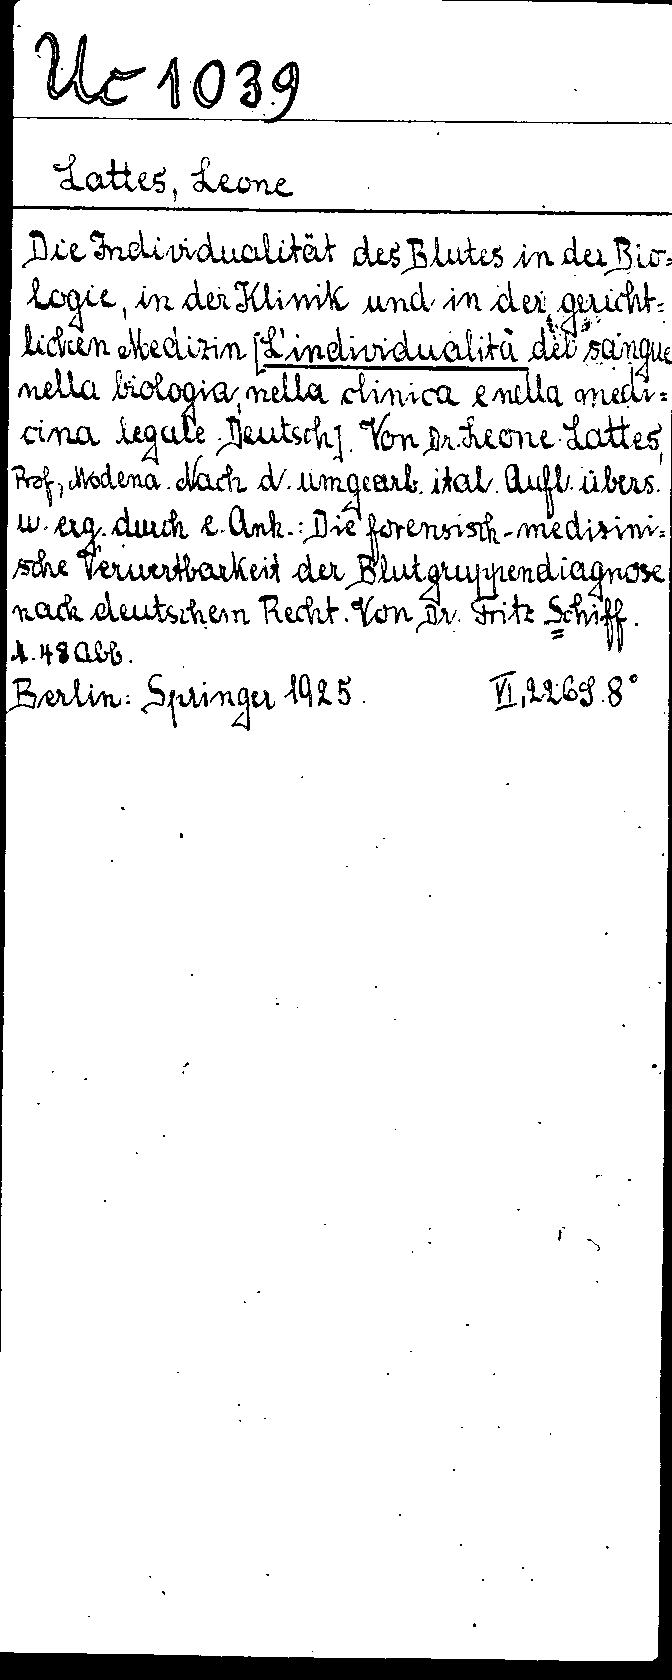 Uc 1039
Lattes, Leone
Die Individualität des Blutes in der Bio=
logie, in der Klinik und in der gericht=
lichen Medizin [L'individualità del sangue
nella biologia, nella clinica e nella medi=
cina legale. Deutsch]. Von Dr. Leone Lattes,
Prof., Modena. Nach d. umgearb. ital. Aufl. übers.
u. erg. durch e. Anh.: Die forensisch-medizini=
sche Verwertbarkeit der Blutgruppendiagnose
nach deutschem Recht. Von Dr. Fritz Schiff.
M. 48 Abb.
Berlin: Springer 1925. VI, 226 S. 8°